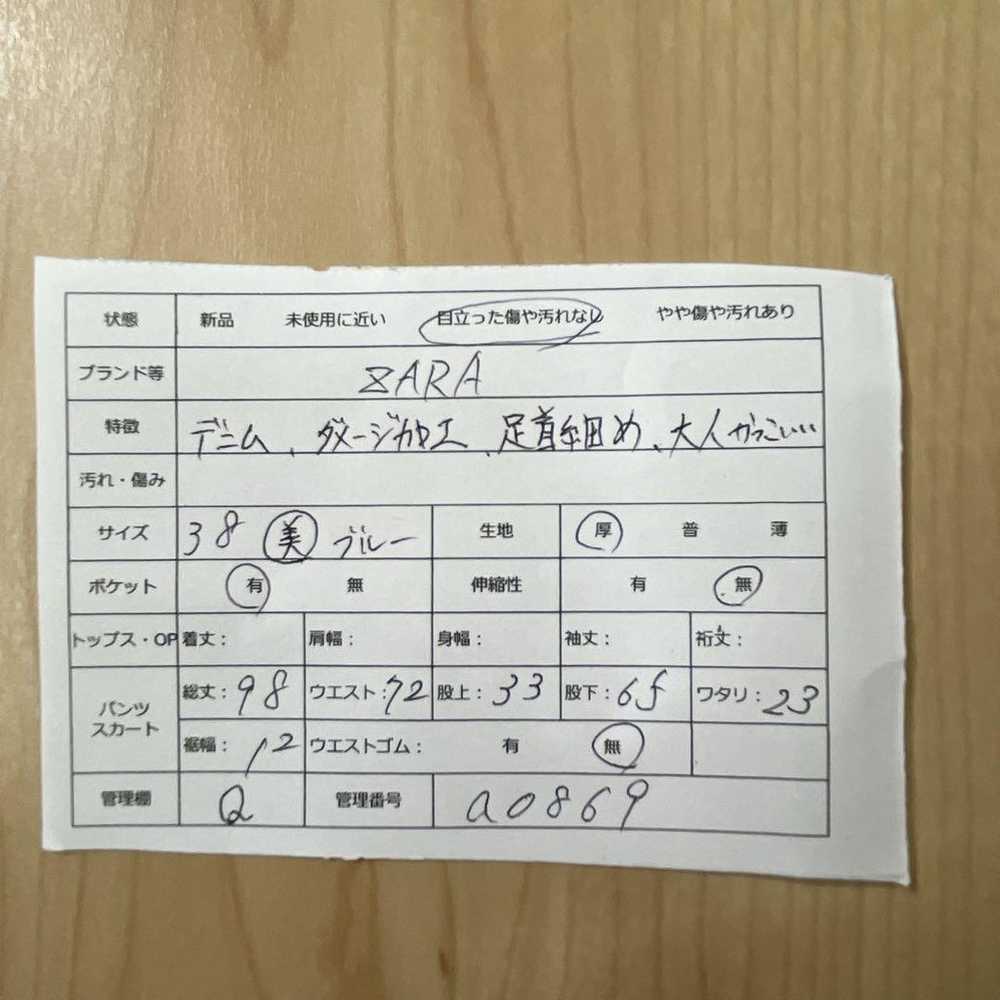 状態 新品 未使用に近い 目立った傷や汚れなし やや傷や汚れあり
ブランド等 ZARA
特徴 デニム、ダメージ加工、足首細め、大人かっこいい
汚れ・傷み
サイズ 38 美 ブルー 生地 厚 普 薄
ポケット 有 無 伸縮性 有 無
トップス・OP 着丈: 肩幅: 身幅: 袖丈: 裄丈:
パンツ スカート 総丈:98 ウエスト:72 股上:33 股下:65 ワタリ:23
裾幅:12 ウエストゴム: 有 無
管理棚 Q 管理番号 a0869